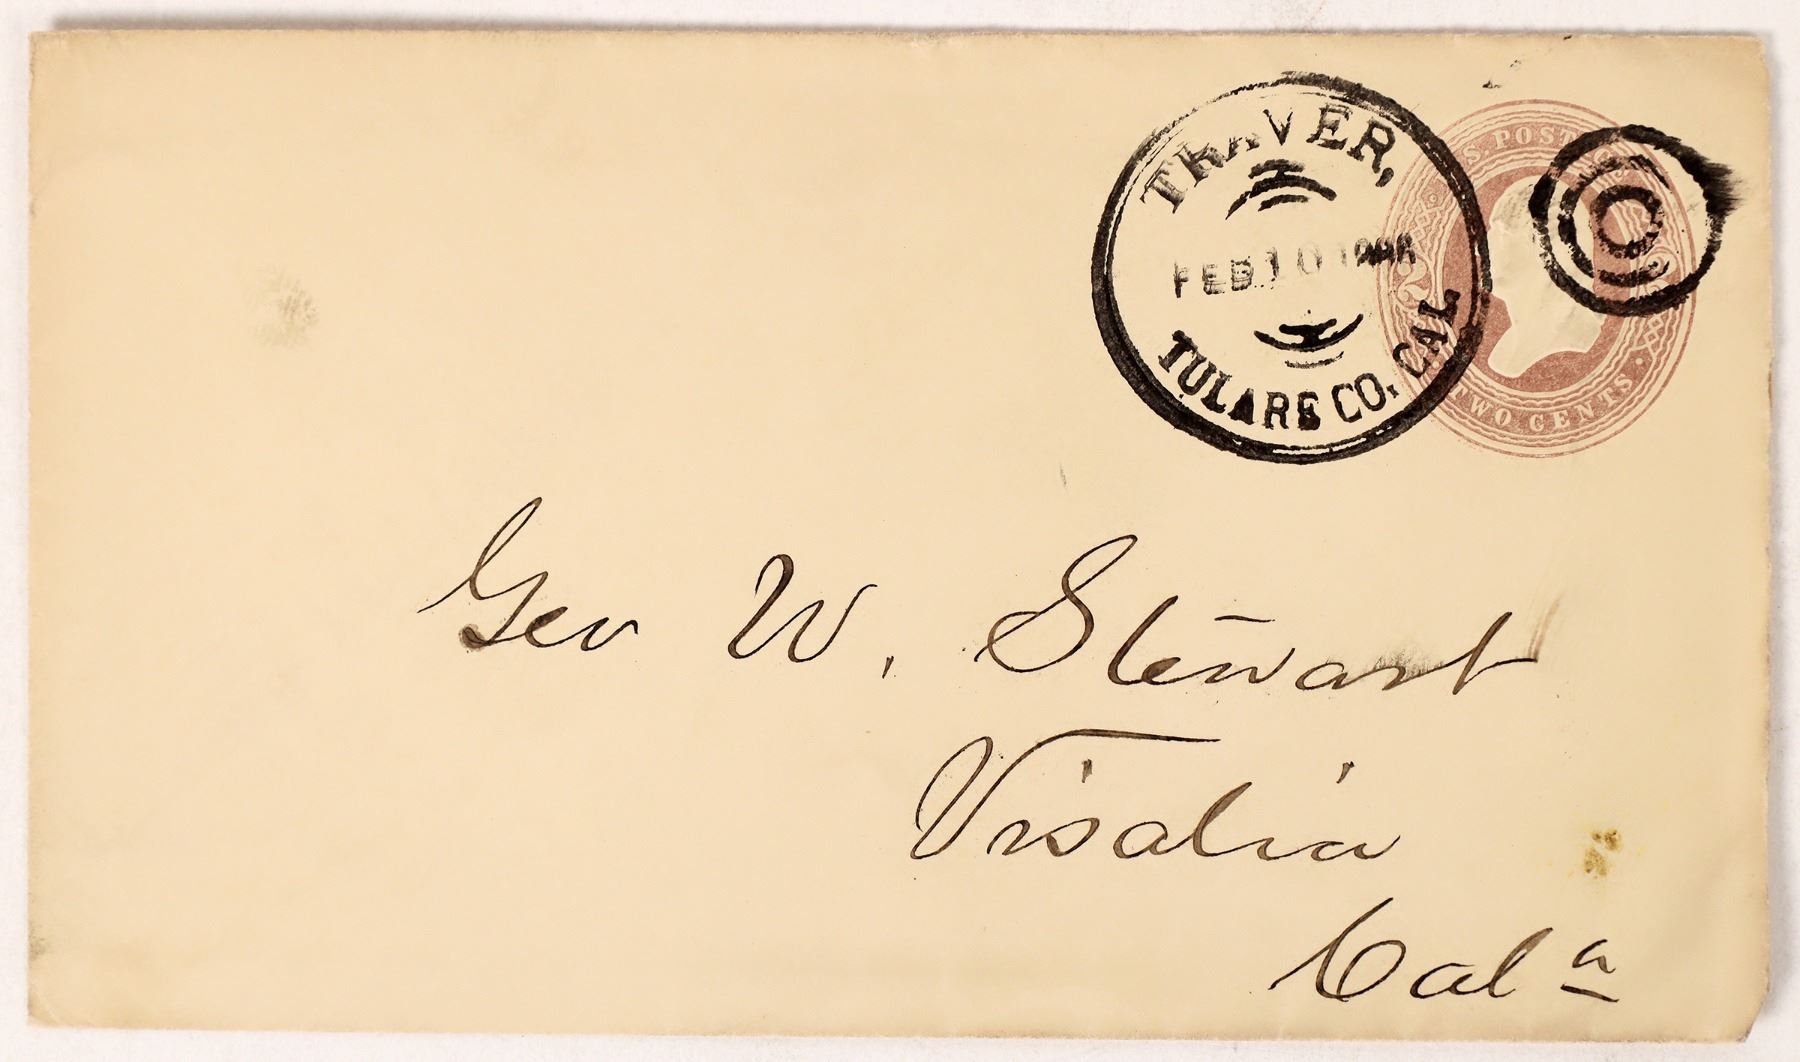 TRAVER,
FEB 10
TULARE CO. CAL
U.S. POSTAGE
2 2
TWO CENTS
Geo W. Stewart
Visalia
Cal a